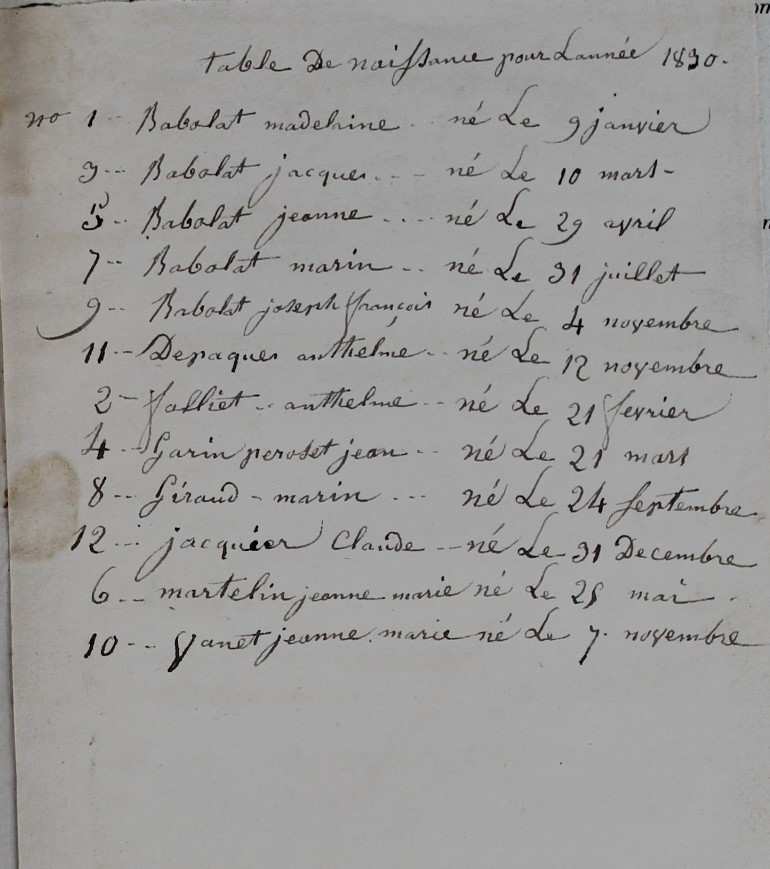 table De naissance pour Lannée 1830.
no 1 -- Babolat madelaine -- né Le 9 janvier
3 -- Babolat jacques --- né Le 10 mars -
5 -- Babolat jeanne ---- né Le 29 avril
7 -- Babolat marin -- né Le 31 juillet
9 -- Babolat joseph françois né Le 4 novembre
11 -- Depaques anthelme -- né Le 12 novembre
2 - falliet -- anthelme -- né Le 21 fevrier
4 -- Garin peroset jean -- né Le 21 mars
8 -- Giraud - marin --- né Le 24 septembre
12 --- jacquier Claude -- né Le 31 Decembre
6 -- martelin jeanne marie né Le 25 mai -
10 -- Vanet jeanne marie né Le 7. novembre